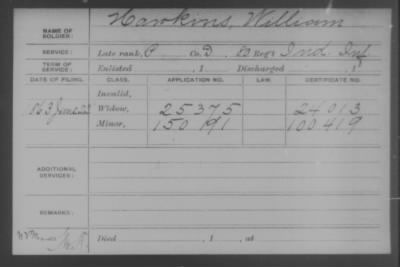 Hawkins, William
NAME OF SOLDIER:
SERVICE: Late rank, P Co. D, 80 Reg't Ind Inf
TERM OF SERVICE: Enlisted , 1 Discharged
DATE OF FILING. CLASS. APPLICATION NO. LAW. CERTIFICATE NO.
Invalid,
1863 June 22 Widow, 25375 24013
Minor, 150191 100419
ADDITIONAL SERVICES:
REMARKS:
Died , 1 , at